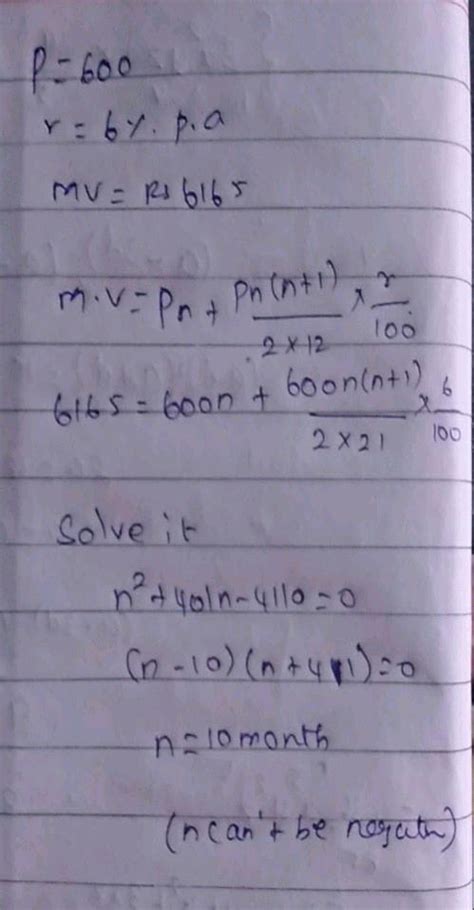 P = 600
r = 6%. p.a
mv = Rs 6165
m.v = Pn + Pn(n+1) / 2 × 12 × r / 100
6165 = 600n + 600n(n+1) / 2 × 21 × 6 / 100
Solve it
n² + 401n - 4110 = 0
(n - 10) (n + 411) = 0
n = 10 month
(n can't be negatu)